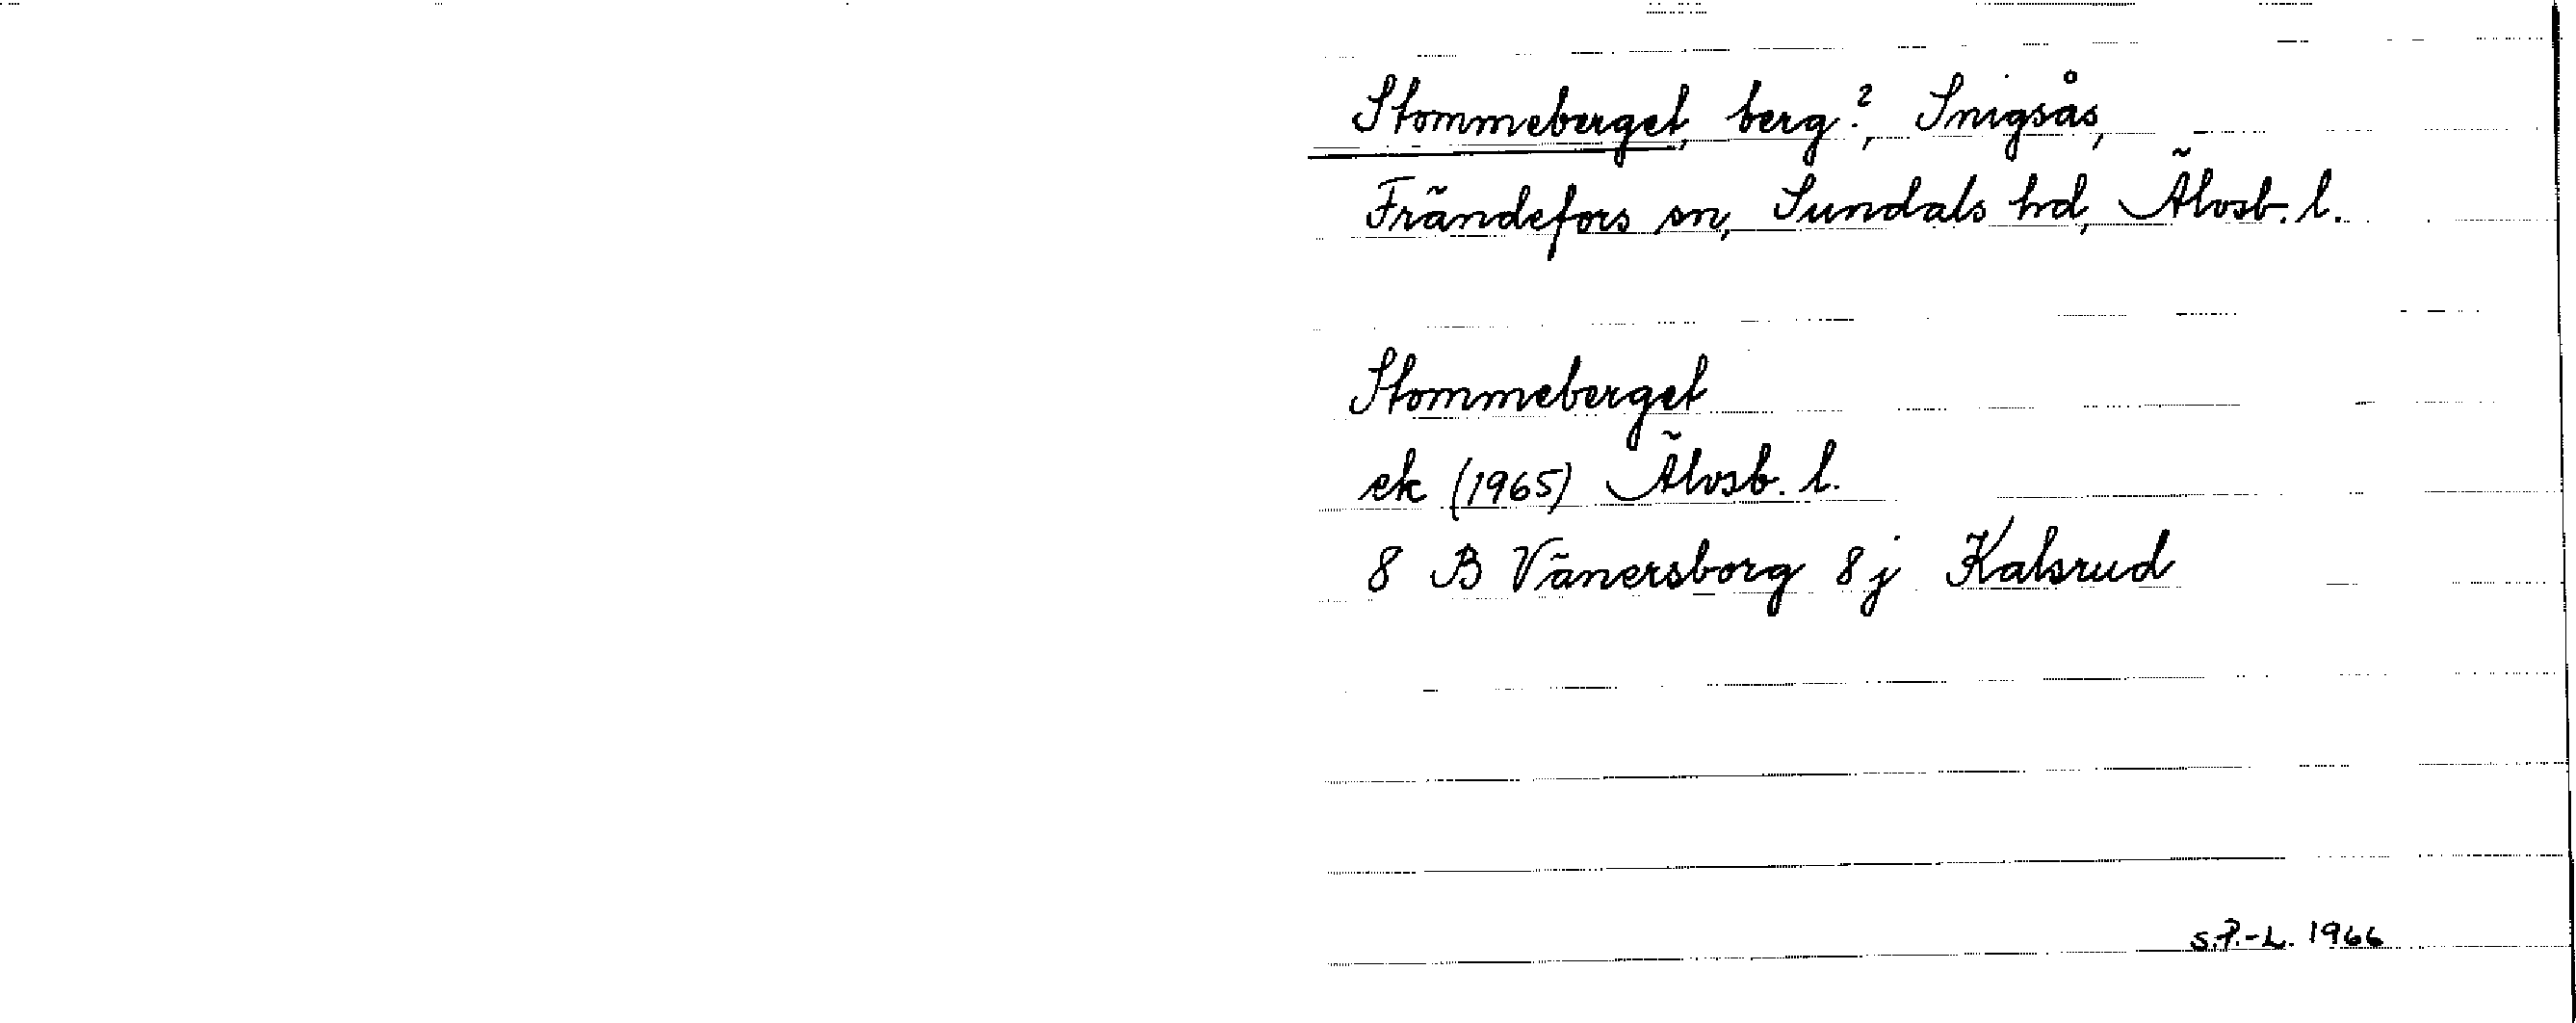 Stommeberget, berg?, Snigsås,
Frändefors sn, Sundals hd, Älvsb. l.
Stommeberget
ek (1965) Älvsb. l.
8 B Vänersborg 8 j Kalsrud
S.P.-L. 1966